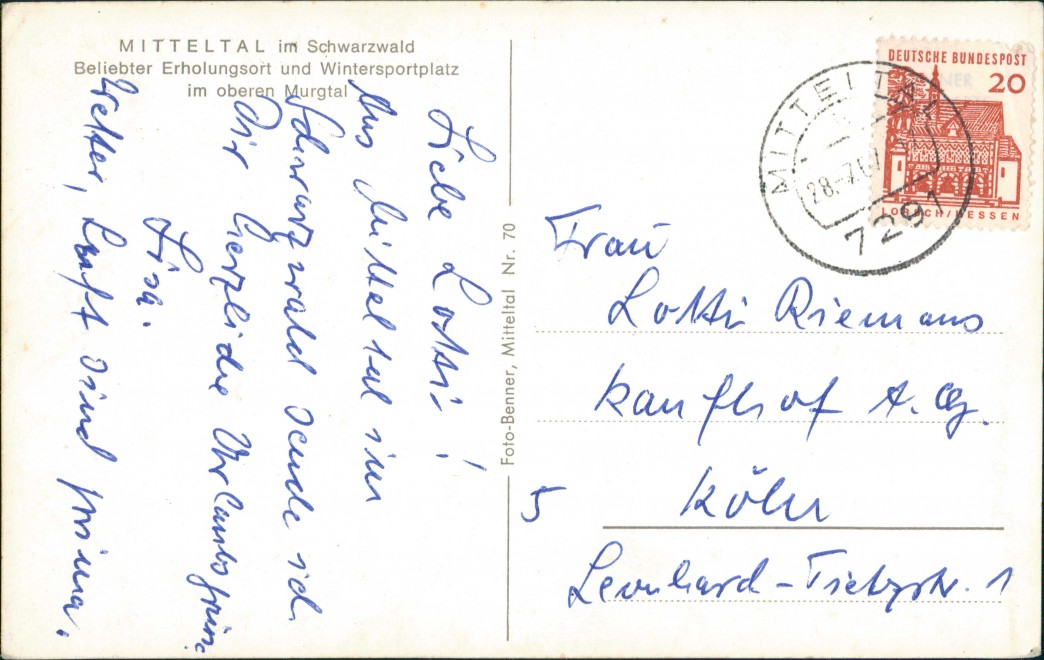 MITTELTAL im Schwarzwald
Beliebter Erholungsort und Wintersportplatz
im oberen Murgtal
Liebe Lotti!
Aus Mitteltal im
Schwarzwald sende ich
Dir herzliche Urlaubsgrüße.
Lisa.
Wetter, Luft sind prima.
Foto-Benner, Mitteltal Nr. 70
DEUTSCHE BUNDESPOST
20
LORSCH/HESSEN
MITTELTAL
28.-7.67
7291
Frau
Lotti Riemans
Kaufhof A.G.
5 Köln
Leonhard-Tietzstr. 1